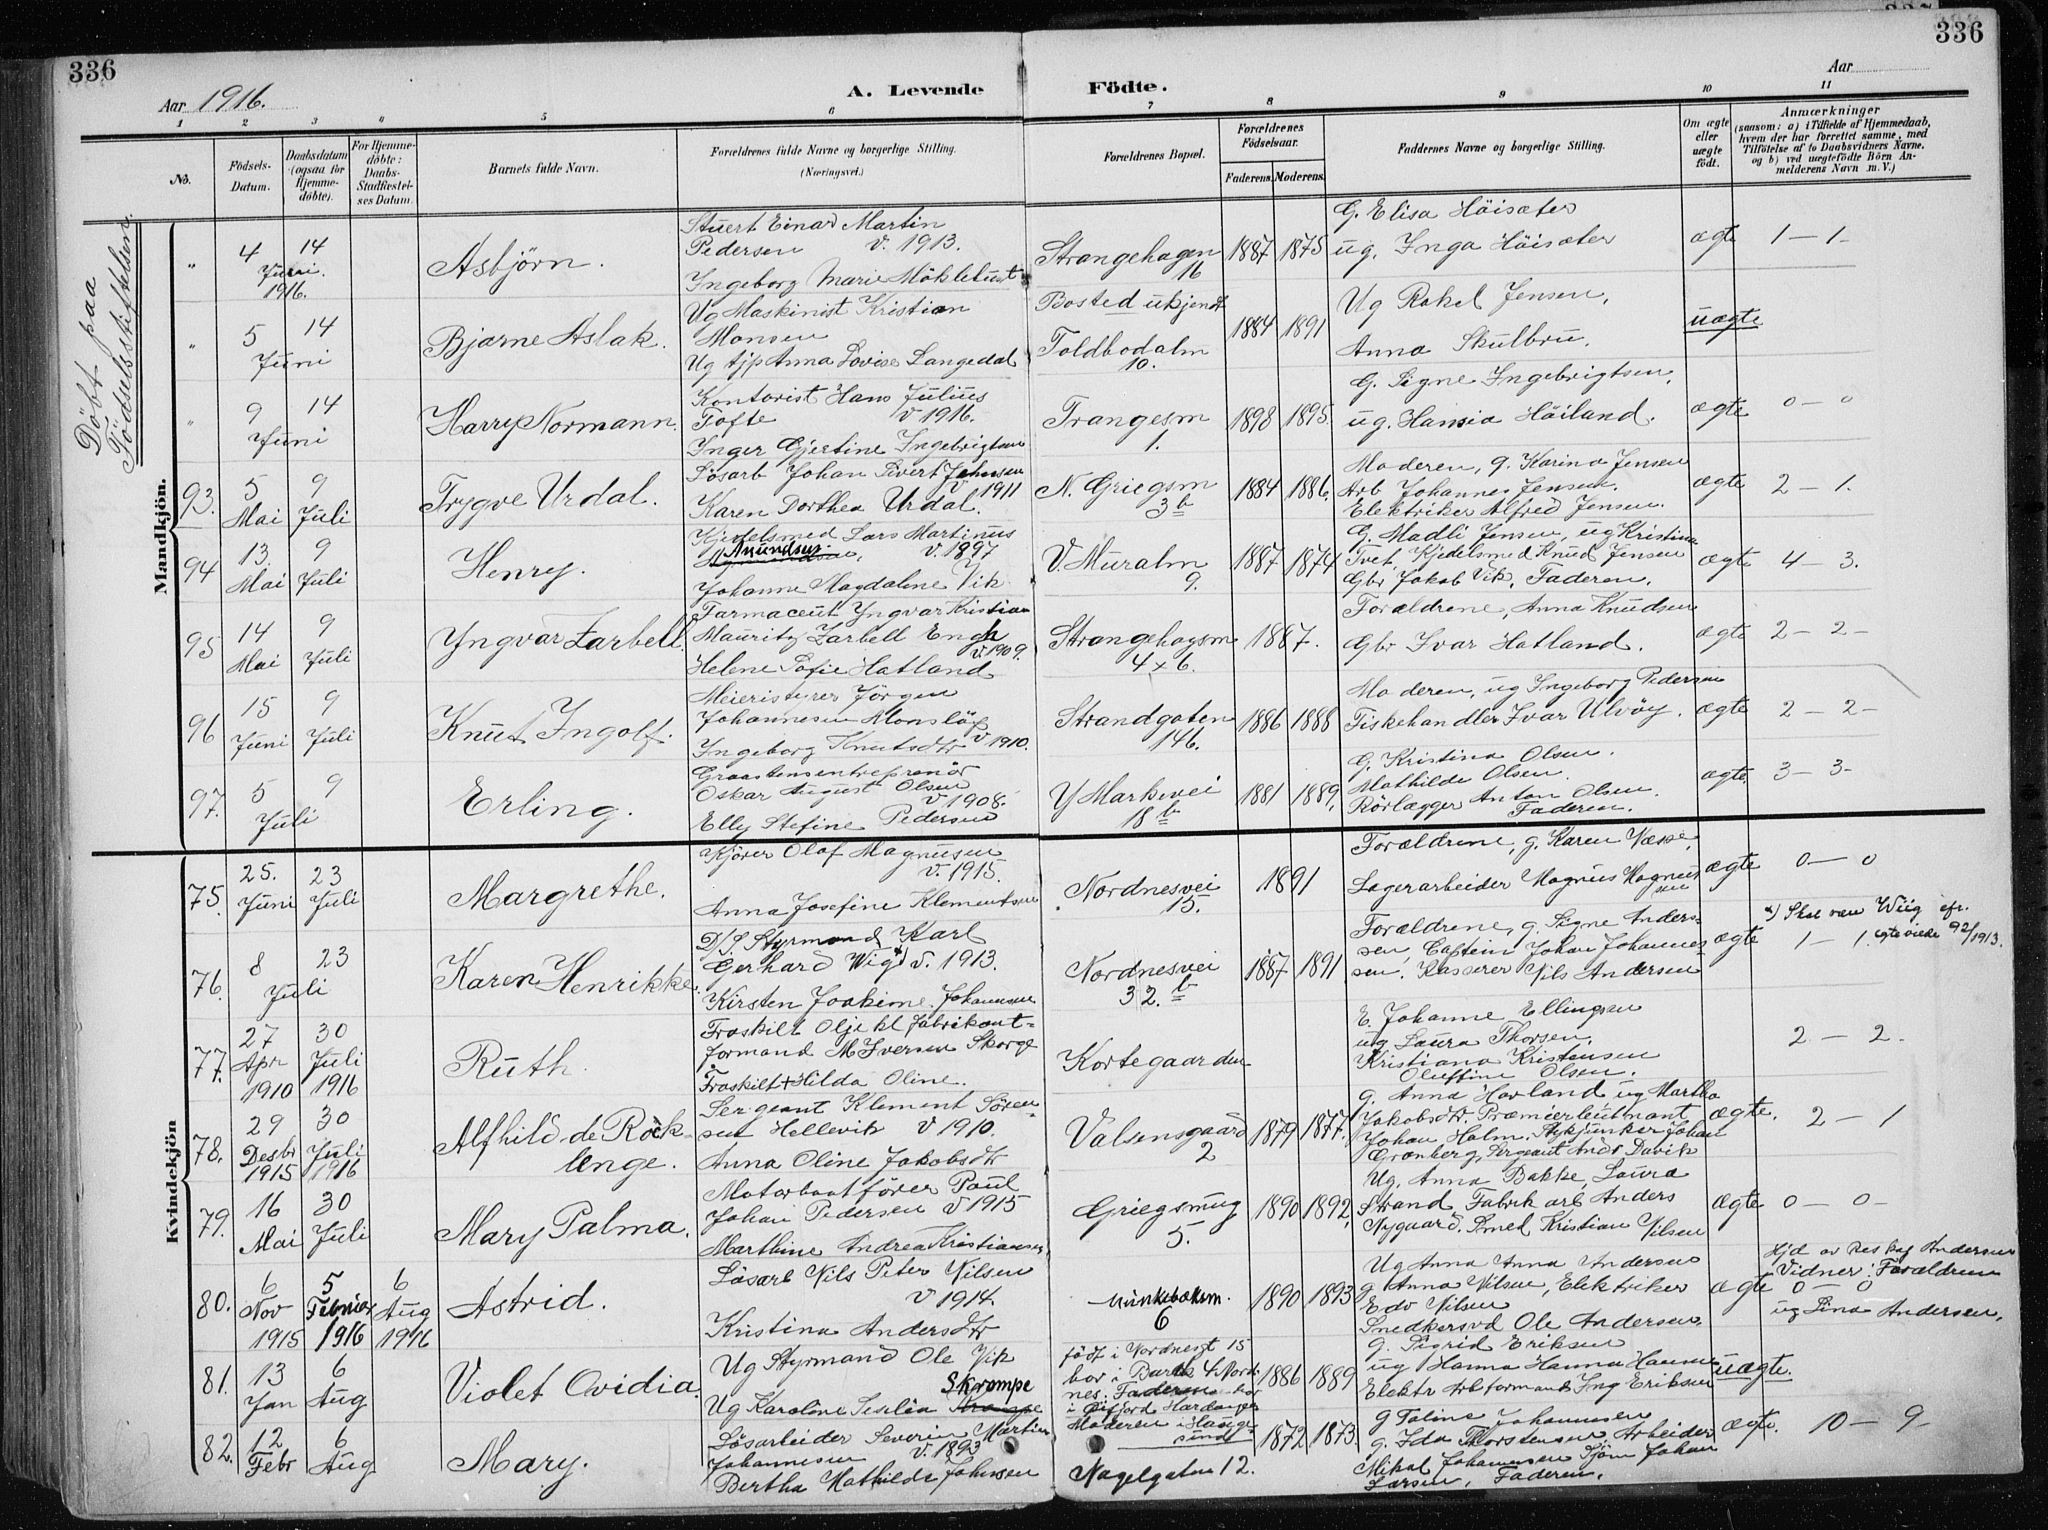 336
336
Aar 1916.
A. Levende Födte.
Aar
1 2 3 4 5 6 7 8 9 10 11
No.
Födsels-Datum.
Daabsdatum (ogsaa for Hjemmedöbte).
For Hjemmedöbte: Daabs-Stadfæstelses Datum.
Barnets fulde Navn.
Forældrenes fulde Navne og borgerlige Stilling.
(Næringsvei.)
Forældrenes Bopæl.
Forældrenes Födselsaar.
Faderens. Moderens.
Faddernes Navne og borgerlige Stilling.
Om ægte eller uægte födt.
Anmærkninger
(saasom: a) i Tilfælde af Hjemmedaab, hvem der har forrettet samme, med Tilföielse af to Daabsvidners Navne. og b) ved uægtefödte Börn Anmelderens Navn m. V.)
Döbt paa Födselsstiftelsen.
Mandkjön.
" 4 Juni 1916. 14 Asbjörn. Stuert Einar Martin Pedersen v. 1913. Ingeborg Marie Möklebust Strangehagen 16 1887 1875 G. Elisa Höisæter ug. Inga Höisæter ægte 1 — 1 -
" 5 Juni 14 Bjarne Aslak. Ug Maskinist Kristian Monsen Ug Anna Lovise Langedal Bosted ukjendt Toldbodalm 10. 1884 1891 Ug Rakel Jensen, Anna Skulbru. uægte
" 9 Juni 14 Harry Normann. Kontorist Hans Julius Tofte v 1916. Inger Gjertine Ingebrigtsen Trangesm 1. 1898 1895. G. Signe Ingebrigtsen, ug. Hansia Höiland. ægte 0 — 0
93. 5 Mai 9 Juli Trygve Urdal. Lösarb Johan Sivert Jensen v. 1911 Karen Dorthea Urdal. N. Griegsm 3b 1884 1886. Moderen, g. Karina Jensen Arb Johannes Jensen. Elektriker Alfred Jensen. ægte 2 — 1.
94 13. Mai 9 Juli Henry. Kjedelsmed Lars Martinus Knudsen. v. 1897 Johanne Magdalene Vik V. Muralm 9. 1887 1874 G. Madli Jensen, ug Kristina Tvet, Kjedelsmed Knud Jensen Gbr Jakob Vik, Faderen. ægte 4 — 3.
95 14 Mai 9 Juli Yngvar Zarbell. Farmaceut Yngvar Kristian Mauritz Zarbell Engh v. 1909. Helene Sofie Hatland Strangehagsm 4 x 6. 1887. Forældrene, Anna Knudsen Gbr Ivar Hatland. ægte 2 — 2 -
96 15 Juni 9 Juli Knut Ingolf. Meieristyrer Jörgen Johannesen Monslöf v 1910. Ingeborg Knutsdtr Strandgaten 146. 1886 1888 Moderen, ug Ingeborg Pedersen Fiskehandler Ivar Ulvöy. ægte 2 — 2 -
97. 5 Juli 9 Erling. Graastensentreprenör Oskar August Olsen v 1908. Elly Stefine Pedersen Y Markvei 18b 1881 1889. G. Kristina Olsen. Mathilde Olsen. Rörlægger Anton Olsen. Faderen. ægte. 3 — 3 -
Kvindekjön
75. 25. Juni 23 Juli Margrethe. Kjörer Olaf Magnusen v. 1915. Anna Josefine Klementsen Nordnesvei 15. 1891 Forældrene, g. Karen Næsse, Lagerarbeider Magnus Magnussen ægte 0 — 0
76. 8 Juli 23 Karen Henrikke. D/S Styrmand Karl Gerhard Wig x) v. 1913. Kirsten Joakime Johannsen Nordnesvei 32.b 1887 1891 Forældrene, g. Signe Anderssen, Captein Johan Johannessen. Kasserer Nils Andersen ægte 1 — 1. x) Skal være Wiig cfr. ægteviede 92/1913.
77. 27 Apr 1910 30 Juli 1916 Ruth. Fraskilt Oljekl fabrikant-formand M Iversen Skorge Fraskilt + Hilda Oline. Kortegaarden E. Johanne Ellingsen ug Laura Thorsen. Kristiana Kristensen Oluffine Olsen. 2 — 2.
78. 29 Desbr 1915 30 Juli 1916 Alfhild de Röck-lenge. Sergeant Klement Sörensen Hellevik v 1910. Anna Oline Jakobsdtr Valsensgaard 2 1879 1877. g. Anna Hovland ug Martha Jakobsdtr. Præmierleutnant Johan Holm. Stykjunker Johan Grønberg, Sergeant Andr Davik ægte. 2 — 1
79. 16 Mai 30 Juli Mary Palma. Motorbaatförer Paul Johan Pedersen v 1915 Marthine Andrea Kristiansen Griegsmug 5. 1890 1892. Ug. Anna Bakke, Laura Strand Fabrik arb Anders Nygaard. Smed Kristian Nilsen ægte 0 — 0 -
80. 6 Nov 1915 5 Februar 1916 6 Aug 1916 Astrid. Lösarb Nils Peter Nilsen v 1914. Kristina Andersdtr Munkebæksm. 6 1890 1893 Ug Anna Anna Andersen g Anna Nilsen, Elektriker Edv Nilsen Snedkersvd Ole Andersen. ægte Hjd av Res kap Andersen Vidner: Forældrene 0 — 0 ug Lina Andersen.
81. 13 Jan 6 Aug Violet Ovidia. Ug Styrmand Ole Vik Ug Karoline Seselia Skrompe född i Nordnesgt 15 bor i Barak 4 Nordnes. Faderen bor i Eifjord Hardanger Moderen i Haugesund 1886 1889 g. Sigrid Eriksen ug Hanna Hanna Hansen Elektr Arbformand Ing Eriksen uægte.
82. 12 Febr 6 Aug Mary. Lösarbeider Severin Martin Johannesen v. 1893 Bertha Mathilde Johnsen Nagelgaten 12. 1872 1873. g Taline Johannesen g. Ida Thorstensen Arbeider Mikal Johannesen Sjöm Johan Larsen, Faderen. ægte. 10 — 9 -